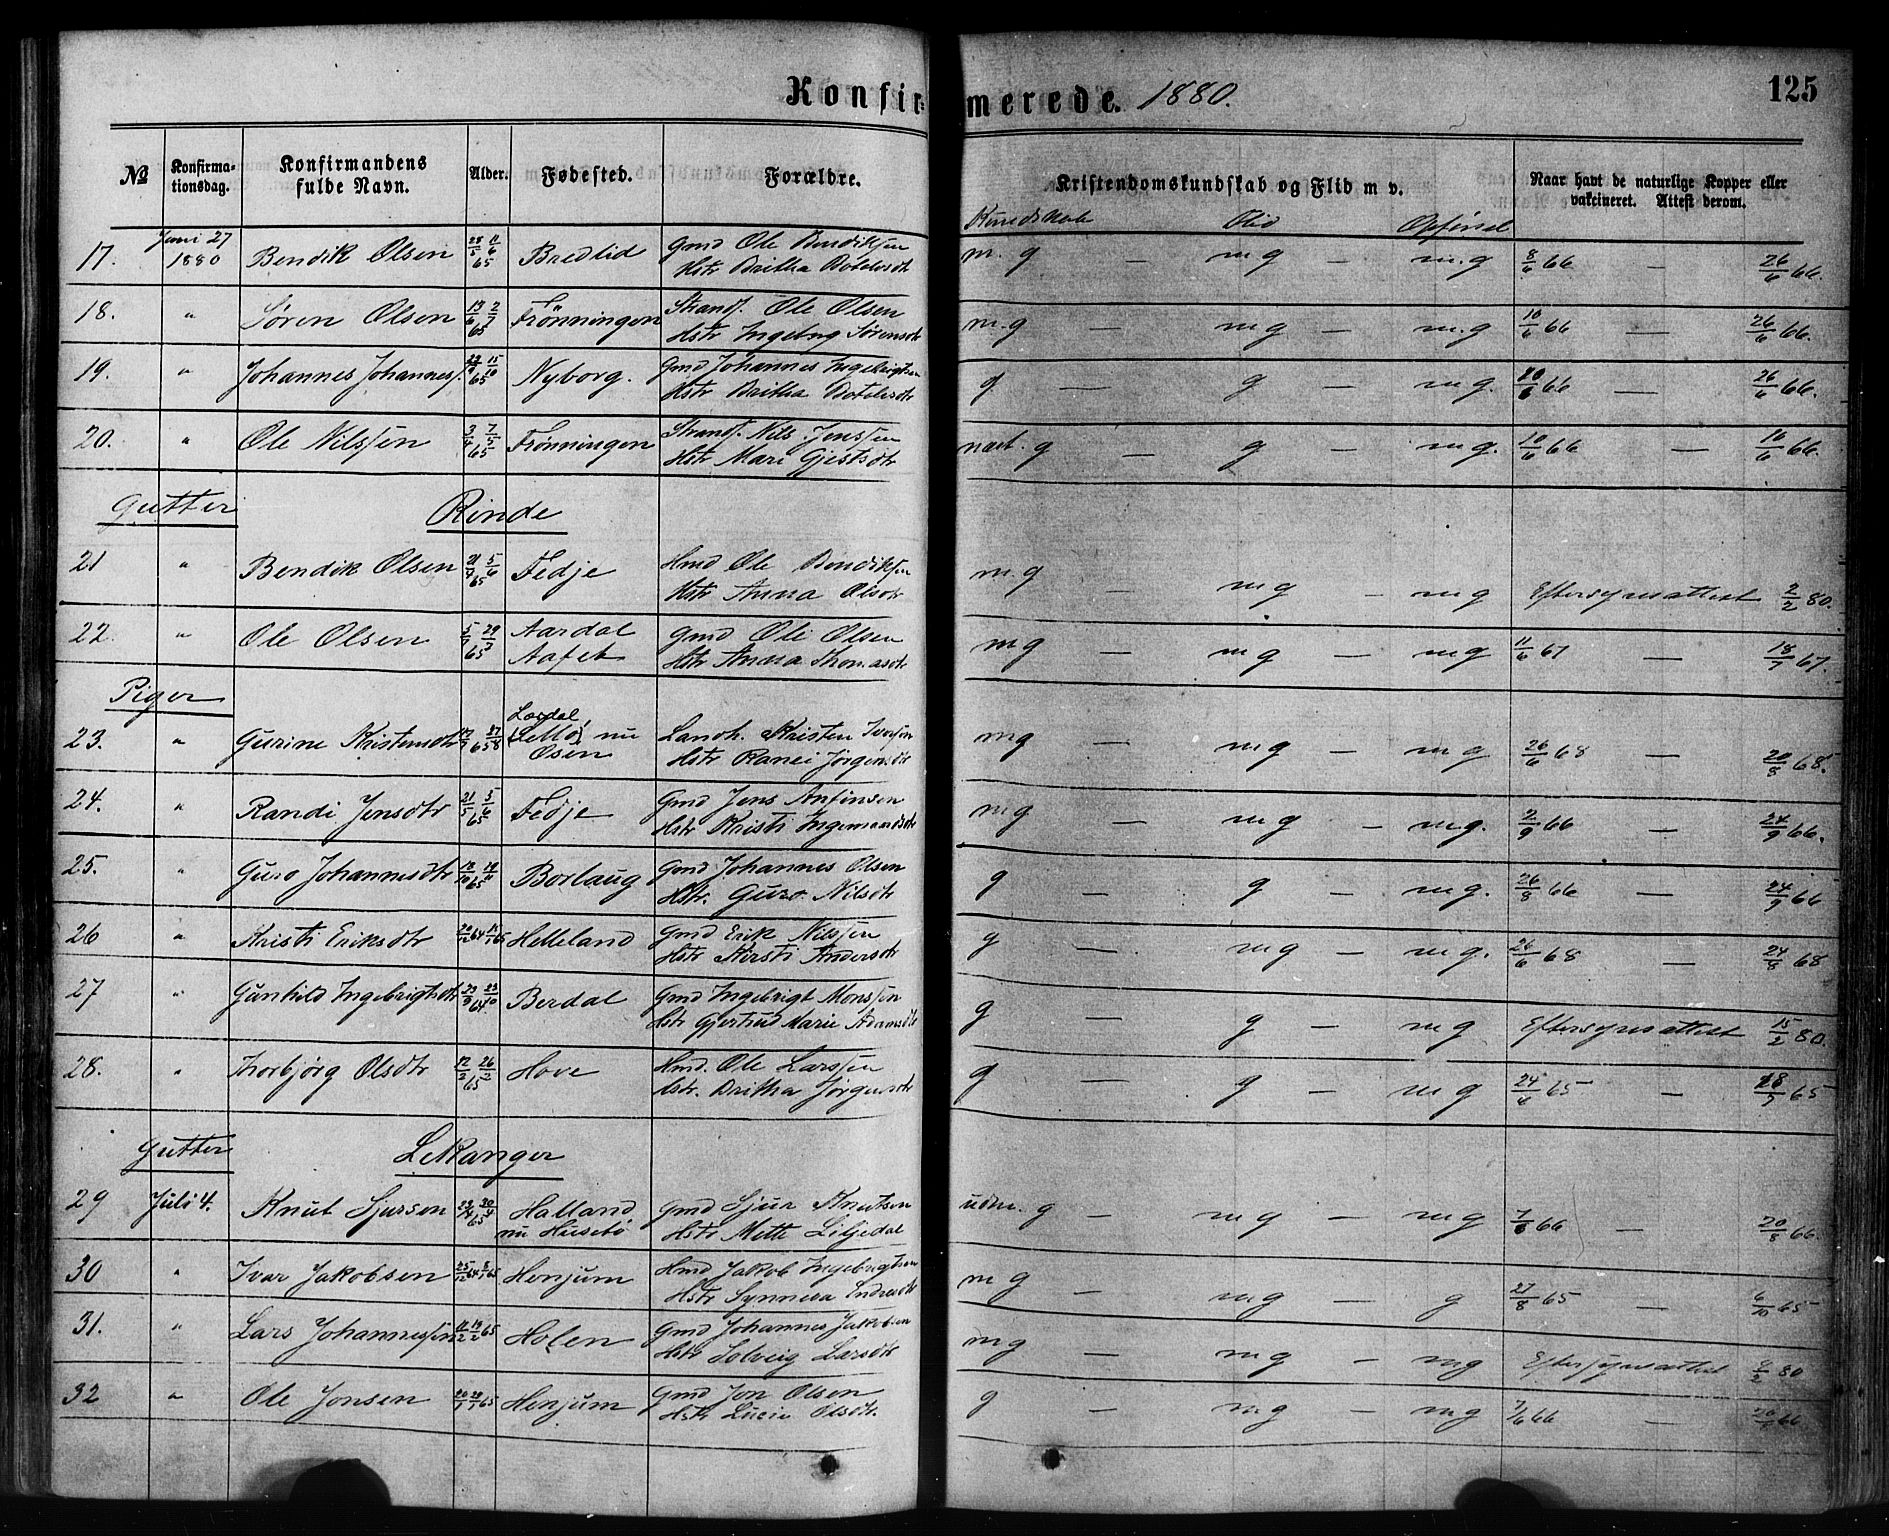 Konfirmerede. 1880. 125
No Konfirmationsdag. Konfirmandens fulde Navn. Alder. Fødested. Forældre. Kristendomskundskab og Flid m v. Naar havt de naturlige Kopper eller vakcineret. Attest derom.
Kundskab Flid Opførsel
17. Juni 27 1880 Bendik Olsen 28/5 11/6 65 Bredlid Gmd Ole Bendiksen Hstr Britha Botolvsdtr m. g — mg — m.g 8/6 66 — 26/6 66.
18. " Søren Olsen 13/6 2/7 65 Frønningen Strands. Ole Olsen Hstr Ingebrg Sørensdtr m.g — mg — m.g 10/6 66 — 26/6 66.
19. " Johannes Johannes/. 15/10 65 Nyborg. Gmd Johannes Ingebrigtsen Hstr Britha Botolvsdtr g — g — mg. 66 — 26/6 66.
20. " Ole Nilssen 3/4 7/5 65 Frønningen Strands. Nils Jenssen Hstr Mari Gjestsdtr næst. g — g — mg. 10/6 66 — 16/6 66.
Gutter Rinde
21 " Bendik Olsen 21/4 5/6 65 Fedje Hmd Ole Bendiksen Hstr Anna Olsdtr m.g mg — mg Eftersynsattest 2/2 80.
22. " Ole Olsen 65 Aardal Aafet Gmd Ole Olsen Hstr Anna Thomasdtr mg — mg — mg 11/6 67 — 18/7 67.
Piger
23. " Gurine Kristensdtr 65 Lærdal, nu Olsen Landh. Kristen Iversen Hstr Ranei Jørgensdtr mg — mg — mg 26/6 68 20/8 68.
24. " Randi Jensdtr 21/5 5/6 65 Fedje Gmd Jens Anfinsen Hstr Kristi Ingemundsdtr mg — mg — mg. 2/9 66 — 24/9 66.
25. " Guro Johannesdtr 65 Borlaug Gmd Johannes Olsen Hstr. Guro Nilsdtr g — g — mg. 26/8 66 — 24/9 66
26 " Kristi Eriksdtr 64 65 Helleland Gmd Erik Nilssen Hstr Kirsti Andersdtr g — mg — mg. 26/6 68 — 24/8 68
27 " Gunhild Ingebrigtsdtr 23/9 23/10 64 Berdal Gmd Ingebrigt Monssen Hstr Gjertrud Marie Adamsdtr g — g — mg Eftersynsattest 15/2 80.
28. " Thorbjørg Olsdtr 12/2 26/2 65 Hove Hmd. Ole Larssen Hstr. Britha Jørgensdtr g — g — mg 24/6 65 — 28/7 65
Gutter Lekanger
29 Juli 4. Knut Sjursen 23/4 30/4 65 Halland nu Husebø Gmd Sjur Knutsen Hstr Mette Liljedal udm. g — mg — mg 7/6 66 — 20/8 66.
30 " Ivar Jakobsen 25/12 64 65 Henjum Hmd Jakob Ingebrigtsen Hstr Synneva Endresdtr m g — mg — g 27/8 65 — 6/10 65
31. " Lars Johannessen 65 Holen Gmd Johannes Jakobsen Hstr Solveig Larsdtr mg — mg — mg Eftersynsattest 80
32 " Ole Jonsen 65 Henjum Gmd Jon Olsen Hstr Lucie Olsdtr. g — mg — mg 7/6 66 — 66